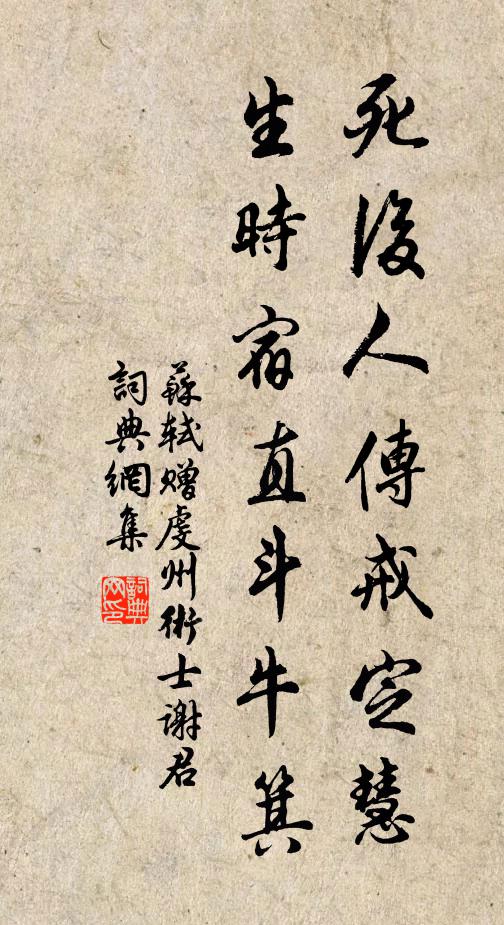 死後人傳戒定慧
生時宿直斗牛箕
蘇軾贈虔州術士謝君
詞典網集
詞典
网印